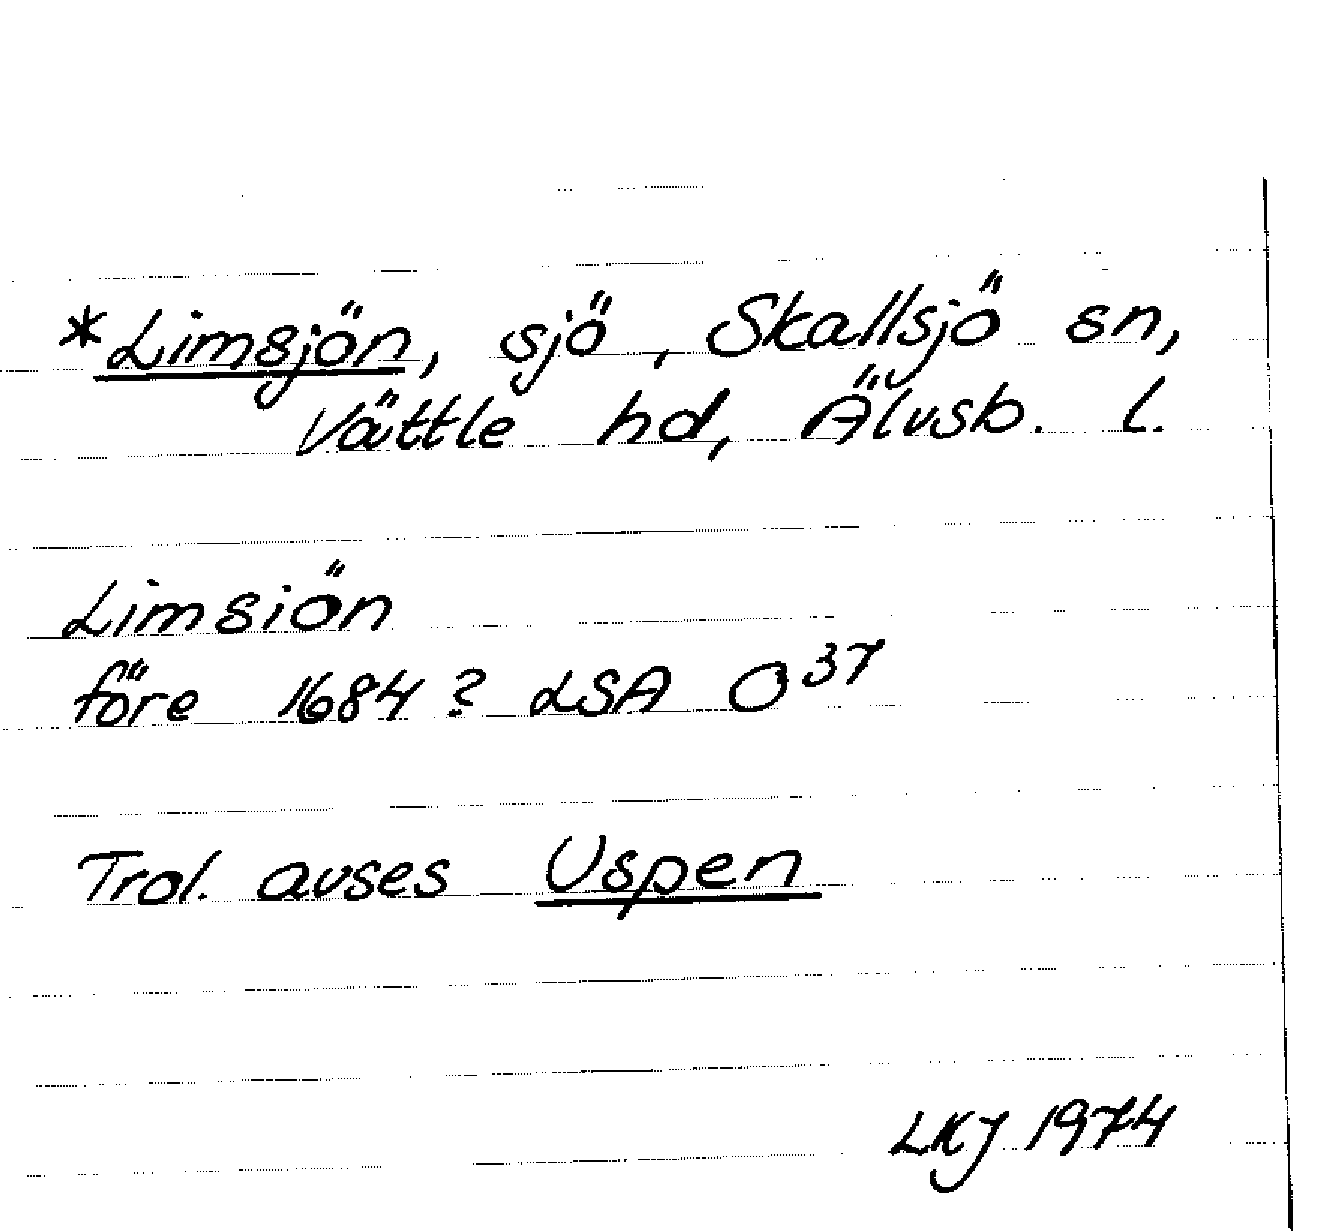 *Limsjön, sjö, Skallsjö sn,
Vättle hd, Älvsb. l.
Limsiön
före 1684? LSA O³⁷
Trol. avses Uspen
LKJ 1974